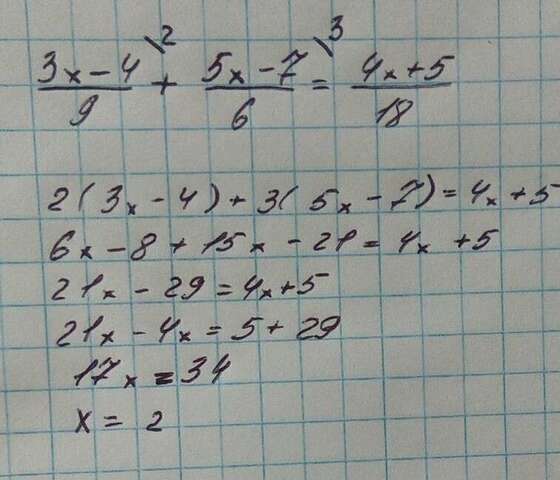 (3x-4)/9 \2 + (5x-7)/6 \3 = (4x+5)/18
2(3x-4)+3(5x-7)=4x+5
6x-8+15x-21=4x+5
21x-29=4x+5
21x-4x=5+29
17x=34
x=2